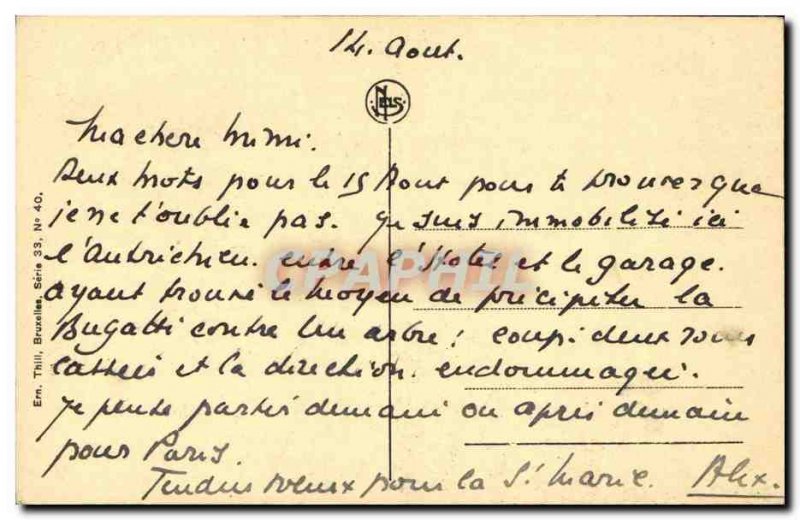 14. Aout.
NELS
Ma chere Mimi.
Deux mots pour le 15 Aout pour te prouver que
je ne t'oublie pas. Je suis immobilisé ici
l'Autrichien. entre l'Hotel et le garage.
ayant trouvé le moyen de précipiter la
Bugatti contre un arbre! coupé: deux roues
cassées et la direction. endommagée.
Je pense partir demain ou après demain
pour Paris.
Tendres voeux pour la St Marie. Alex.
Ern. Thill, Bruxelles, Série 33, N° 40.
CPAPHIL